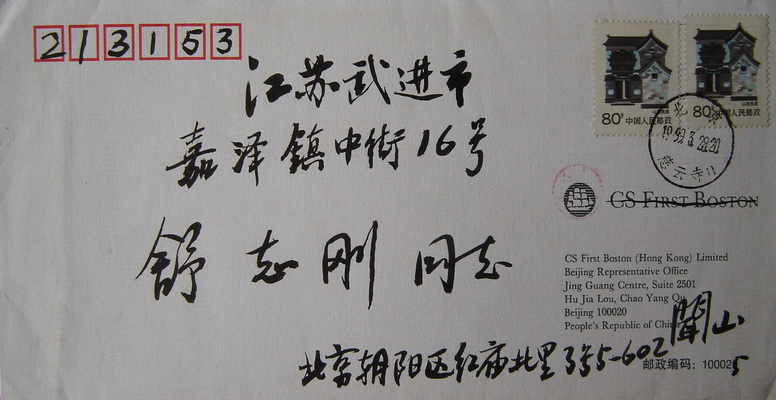 213153
江苏武进市
嘉泽镇中街16号
舒志刚 同志
80分 中国人民邮政
80分 中国人民邮政
北京
1999.3.28.20
慈云寺11
CS FIRST BOSTON
CS First Boston (Hong Kong) Limited
Beijing Representative Office
Jing Guang Centre, Suite 2501
Hu Jia Lou, Chao Yang Qu
Beijing 100020
People's Republic of China
闻山
北京朝阳区红庙北里3号5-602
邮政编码: 100025